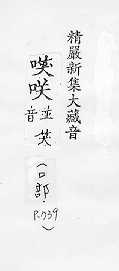 精嚴新集大藏音
㗛咲並笑
音
(口部.
P.739)